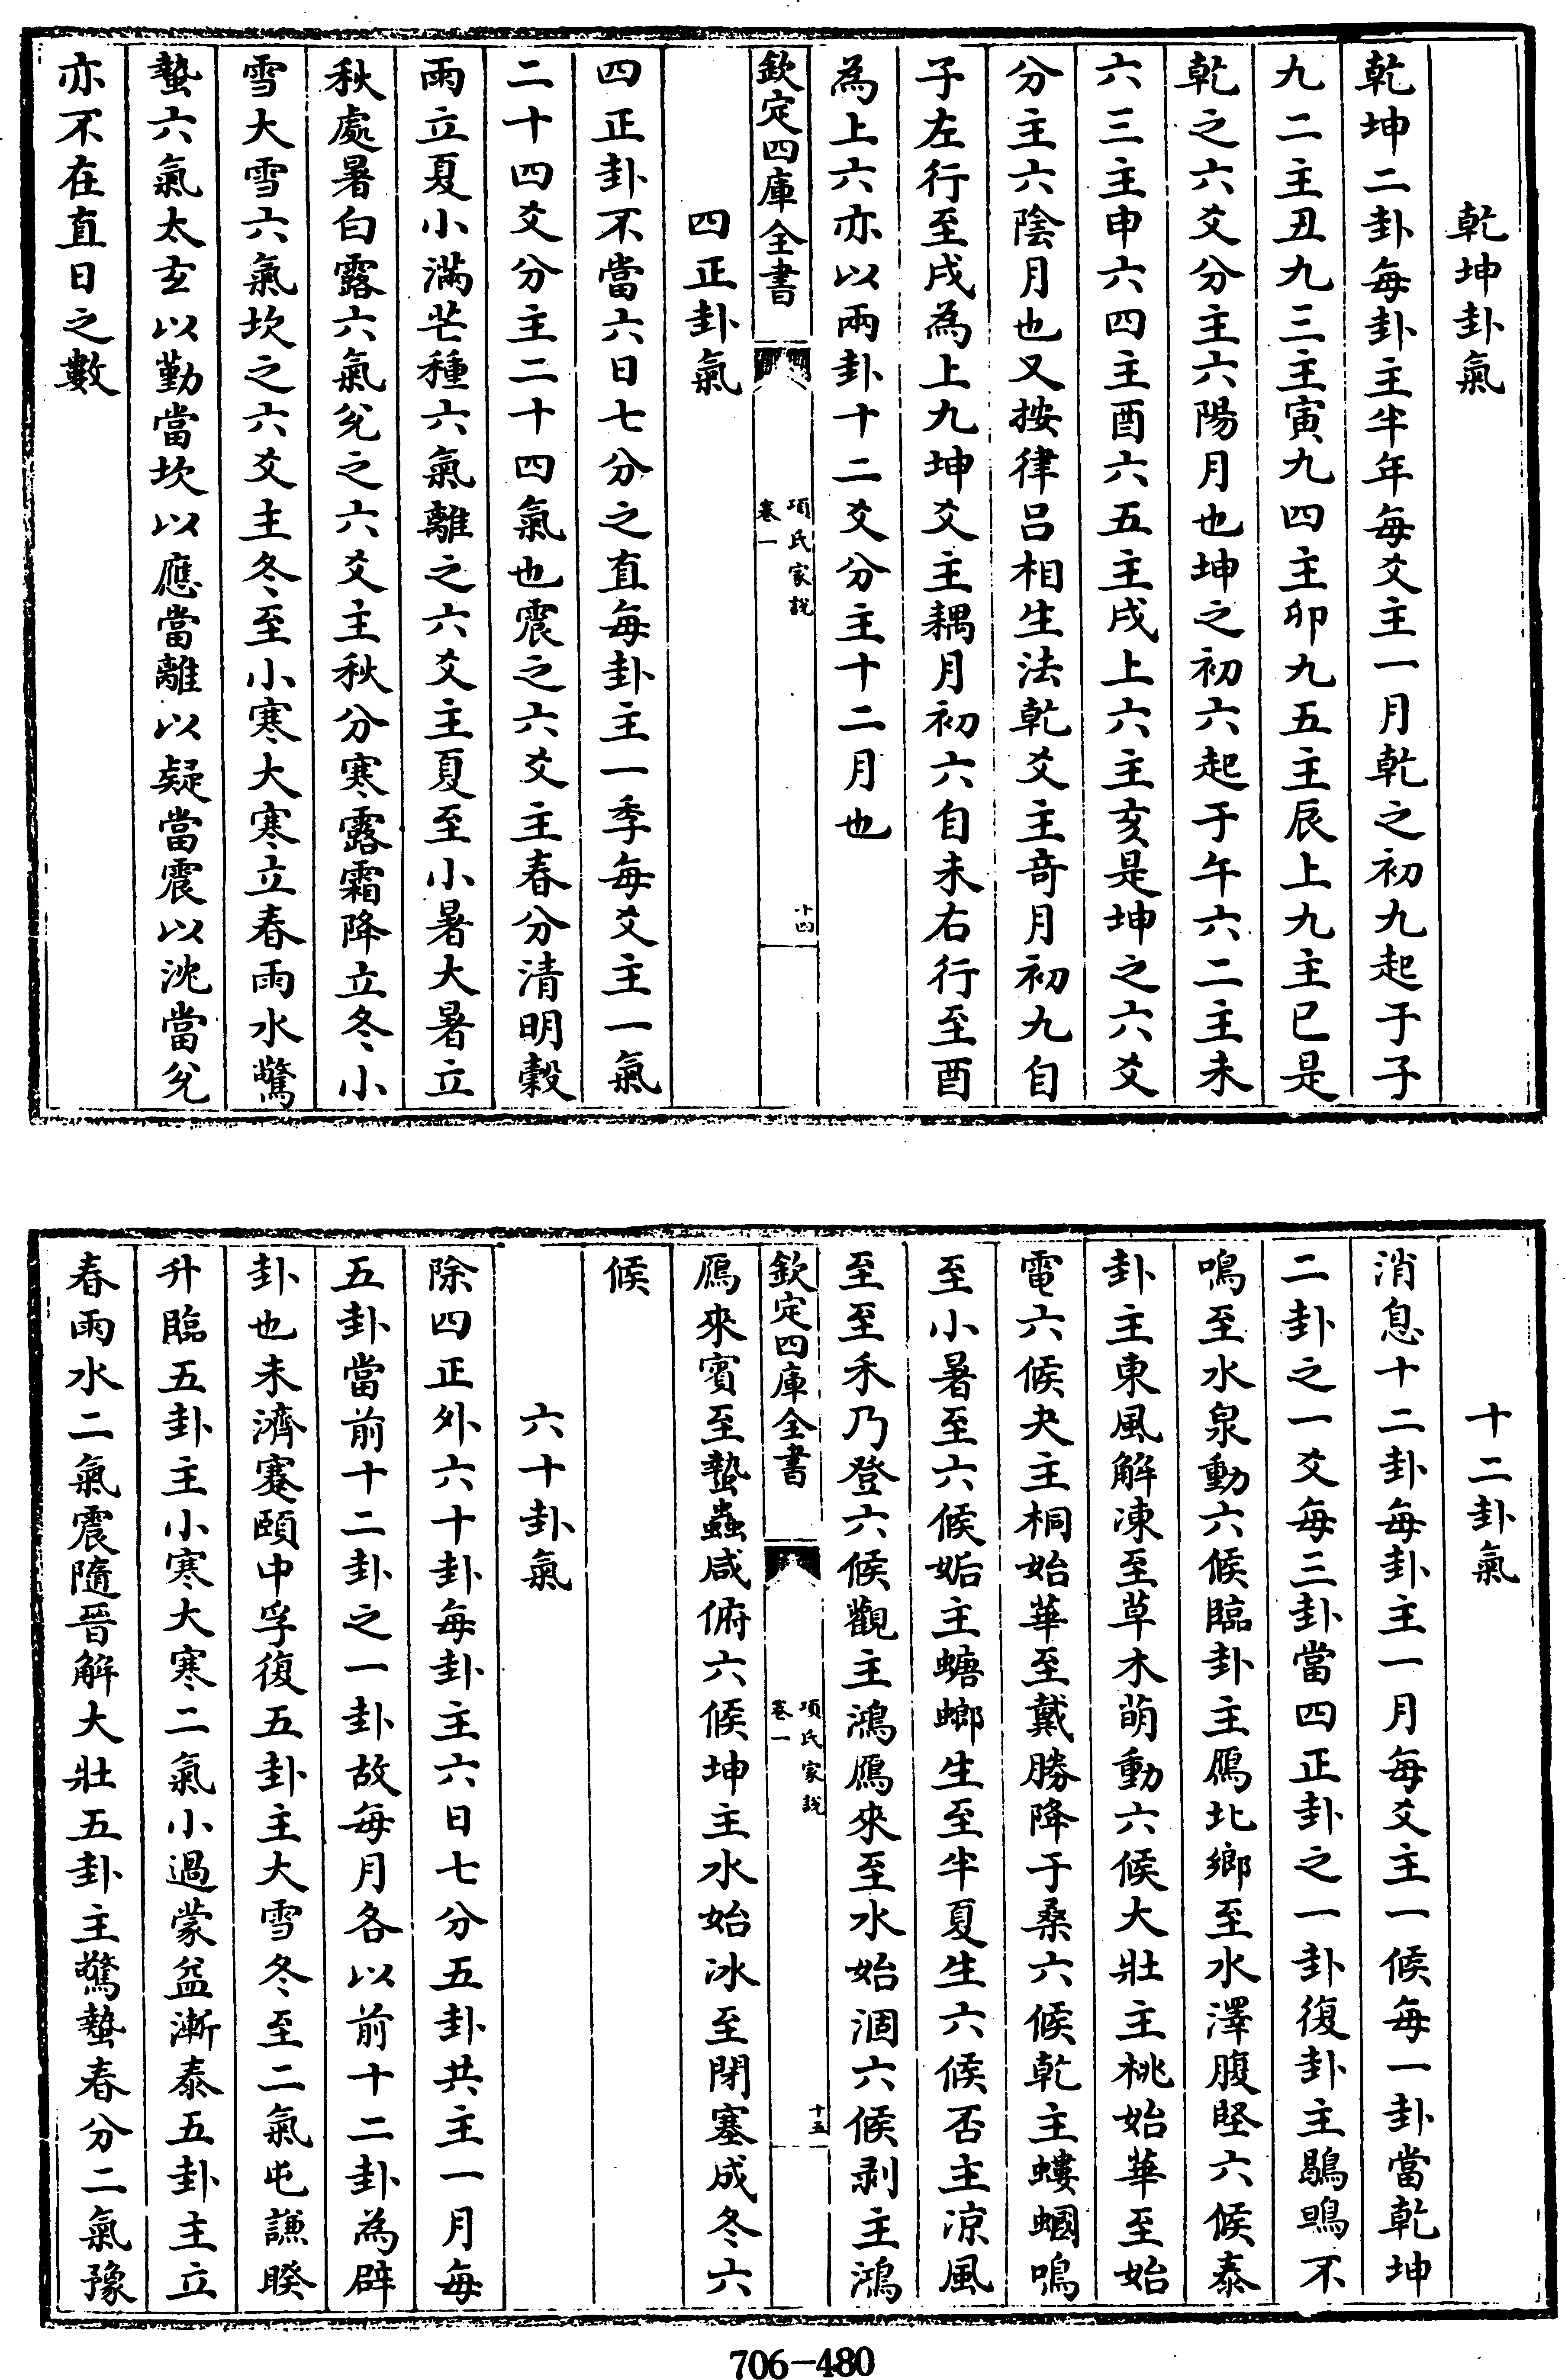 乾坤卦氣
乾坤二卦每卦主半年每爻主一月乾之初九起于子
九二主丑九三主寅九四主卯九五主辰上九主巳是
乾之六爻分主六陽月也坤之初六起于午六二主未
六三主申六四主酉六五主戌上六主亥是坤之六爻
分主六陰月也又按律呂相生法乾爻主奇月初九自
子左行至戌為上九坤爻主耦月初六自未右行至酉
為上六亦以兩卦十二爻分主十二月也
欽定四庫全書
項氏家說
卷一
十四
四正卦氣
四正卦不當六日七分之直每卦主一季每爻主一氣
二十四爻分主二十四氣也震之六爻主春分清明穀
雨立夏小滿芒種六氣離之六爻主夏至小暑大暑立
秋處暑白露六氣兊之六爻主秋分寒露霜降立冬小
雪大雪六氣坎之六爻主冬至小寒大寒立春雨水驚
蟄六氣太玄以勤當坎以應當離以疑當震以沈當兊
亦不在直日之數
十二卦氣
消息十二卦每卦主一月每爻主一候每一卦當乾坤
二卦之一爻每三卦當四正卦之一卦復卦主鶡鴠不
鳴至水泉動六候臨卦主鴈北鄉至水澤腹堅六候泰
卦主東風解凍至草木萌動六候大壯主桃始華至始
電六候夬主桐始華至戴勝降于桑六候乾主螻蟈鳴
至小暑至六候姤主螗螂生至半夏生六候否主涼風
至至禾乃登六候觀主鴻鴈來至水始涸六候剥主鴻
欽定四庫全書
項氏家說
卷一
十五
鴈來賓至蟄蟲咸俯六候坤主水始冰至閉塞成冬六
候
六十卦氣
除四正外六十卦每卦主六日七分五卦共主一月每
五卦當前十二卦之一卦故每月各以前十二卦為辟
卦也未濟蹇頤中孚復五卦主大雪冬至二氣屯謙睽
升臨五卦主小寒大寒二氣小過蒙益漸泰五卦主立
春雨水二氣震隨晉解大壯五卦主驚蟄春分二氣豫
706-480